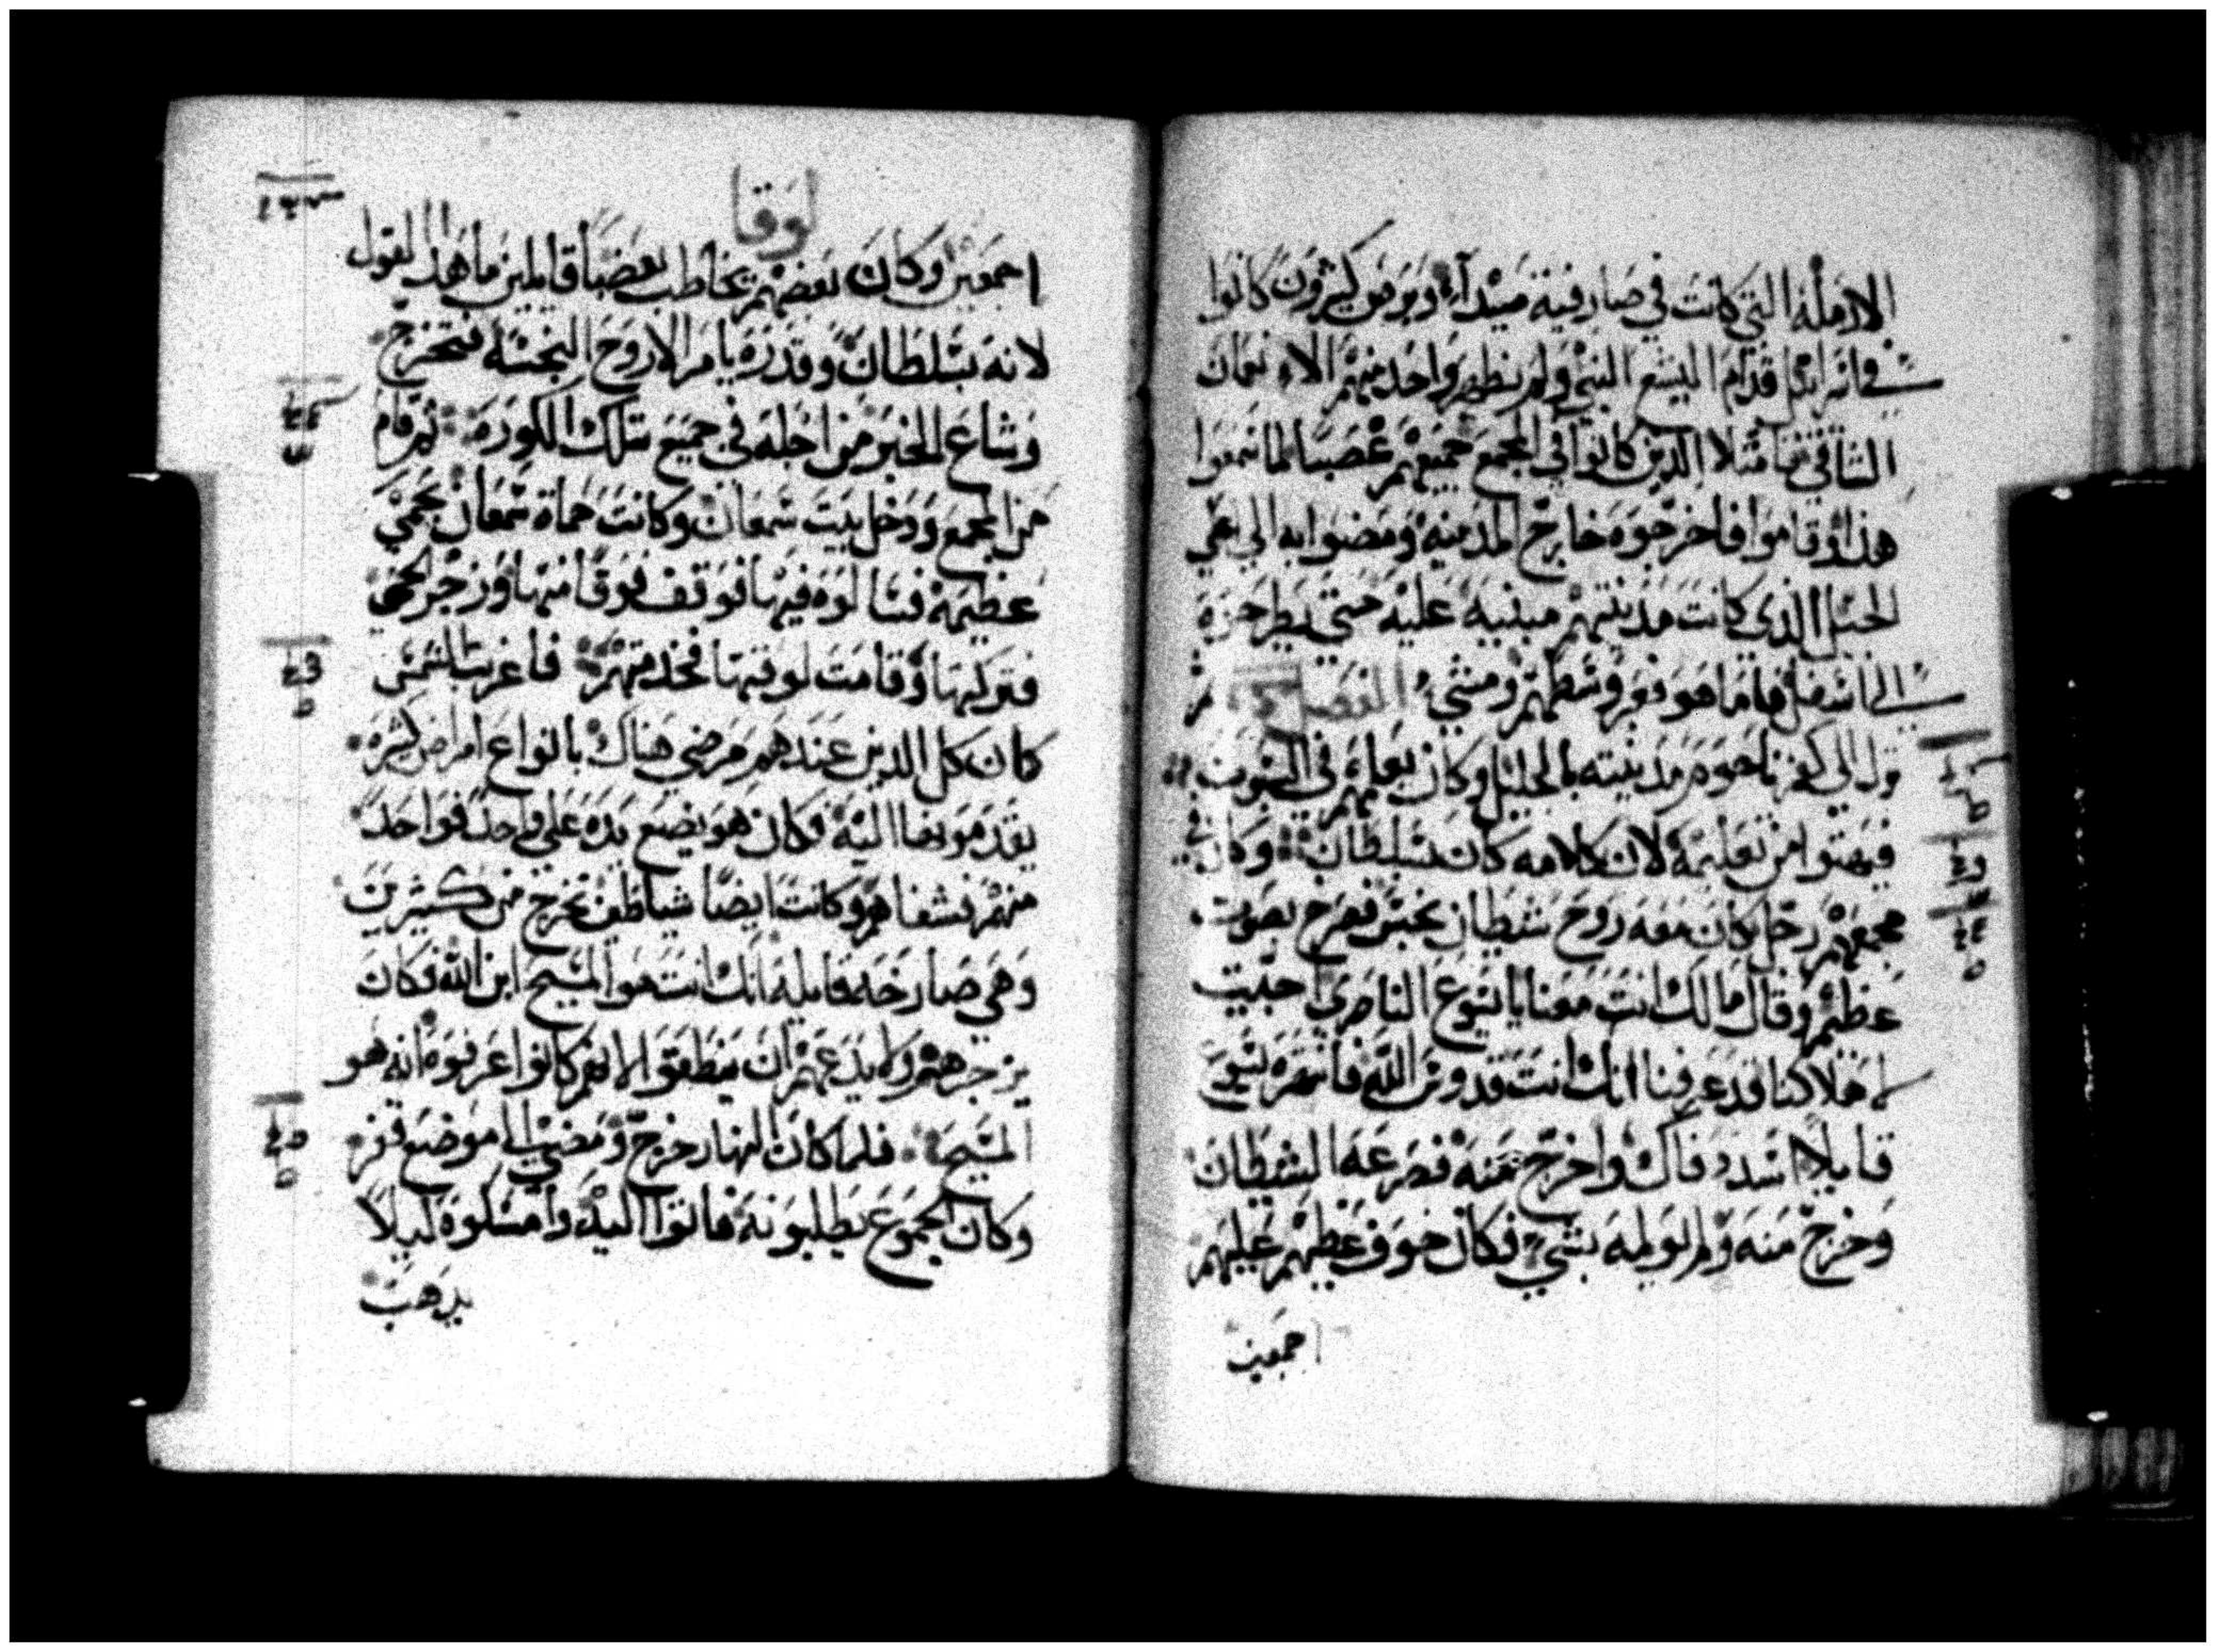 الارمله التي كانت في صارفية صيدا وبرص كثيرون كانوا
في اسرائيل قدام اليسع النبي ولم يطهر واحد منهم الا نعمان
السامي فامتلا الذين كانوا في المجمع جميعهم غضبا لما سمعوا
هذا وقاموا فاخرجوه خارج المدينه ومضوا به الي اعلي
الجبل الذي كانت مدينتهم مبنيه عليه حتي يطرحوه
الي اسفل فاما هو فعبر وسطهم ومشي الفصل ثم
نزل الي كفرناحوم مدينته بالجليل وكان يعلمهم في السبوت
فبهتوا من تعليمه لان كلامه كان بسلطان وكان في
مجمعهم رجل كان معه روح شيطان نجس فصرخ بصوت
عظيم وقال ما لك انت معنا يا يسوع الناصري اجيت
لهلاكنا قد عرفنا انك انت قدوس الله فانتهره يسوع
قايلا اسدد فاك واخرج منه فصرعه الشيطان
وخرج منه ولم يولمه بشي فكان خوف عظيم عليهم
اجمعين
لوقا
اجمعين وكان بعضهم يخاطب بعضا قايلين ما هذا القول
لانه بسلطان وقدره يامر الارواح النجسه فتخرج
وشاع الخبر من اجله في جميع تلك الكوره ثم قام
من المجمع ودخل بيت سمعان وكانت حماة سمعان بحمي
عظيمه فسالوه فيها فوقف فوقا منها وزجر الحمي
فتركتها وقامت لوقتها تخدمهم فلما غربت الشمس
كان كل الذين عندهم مرضي هناك بانواع امراض كثيره
يقدموهم اليه وكان هو يضع يده علي واحد فواحد
منهم فشفاهم وكانت ايضا شياطين تخرج من كثيرين
وهي صارخه قايله انك انت هو المسيح ابن الله فكان
يزجرهم ولا يدعهم ان ينطقوا لانهم كانوا عرفوه انه هو
المسيح فلما كان النهار خرج ومضي الي موضع قفر
وكان الجموع يطلبونه فاتوا اليه وامسكوه ليلا
يذهب